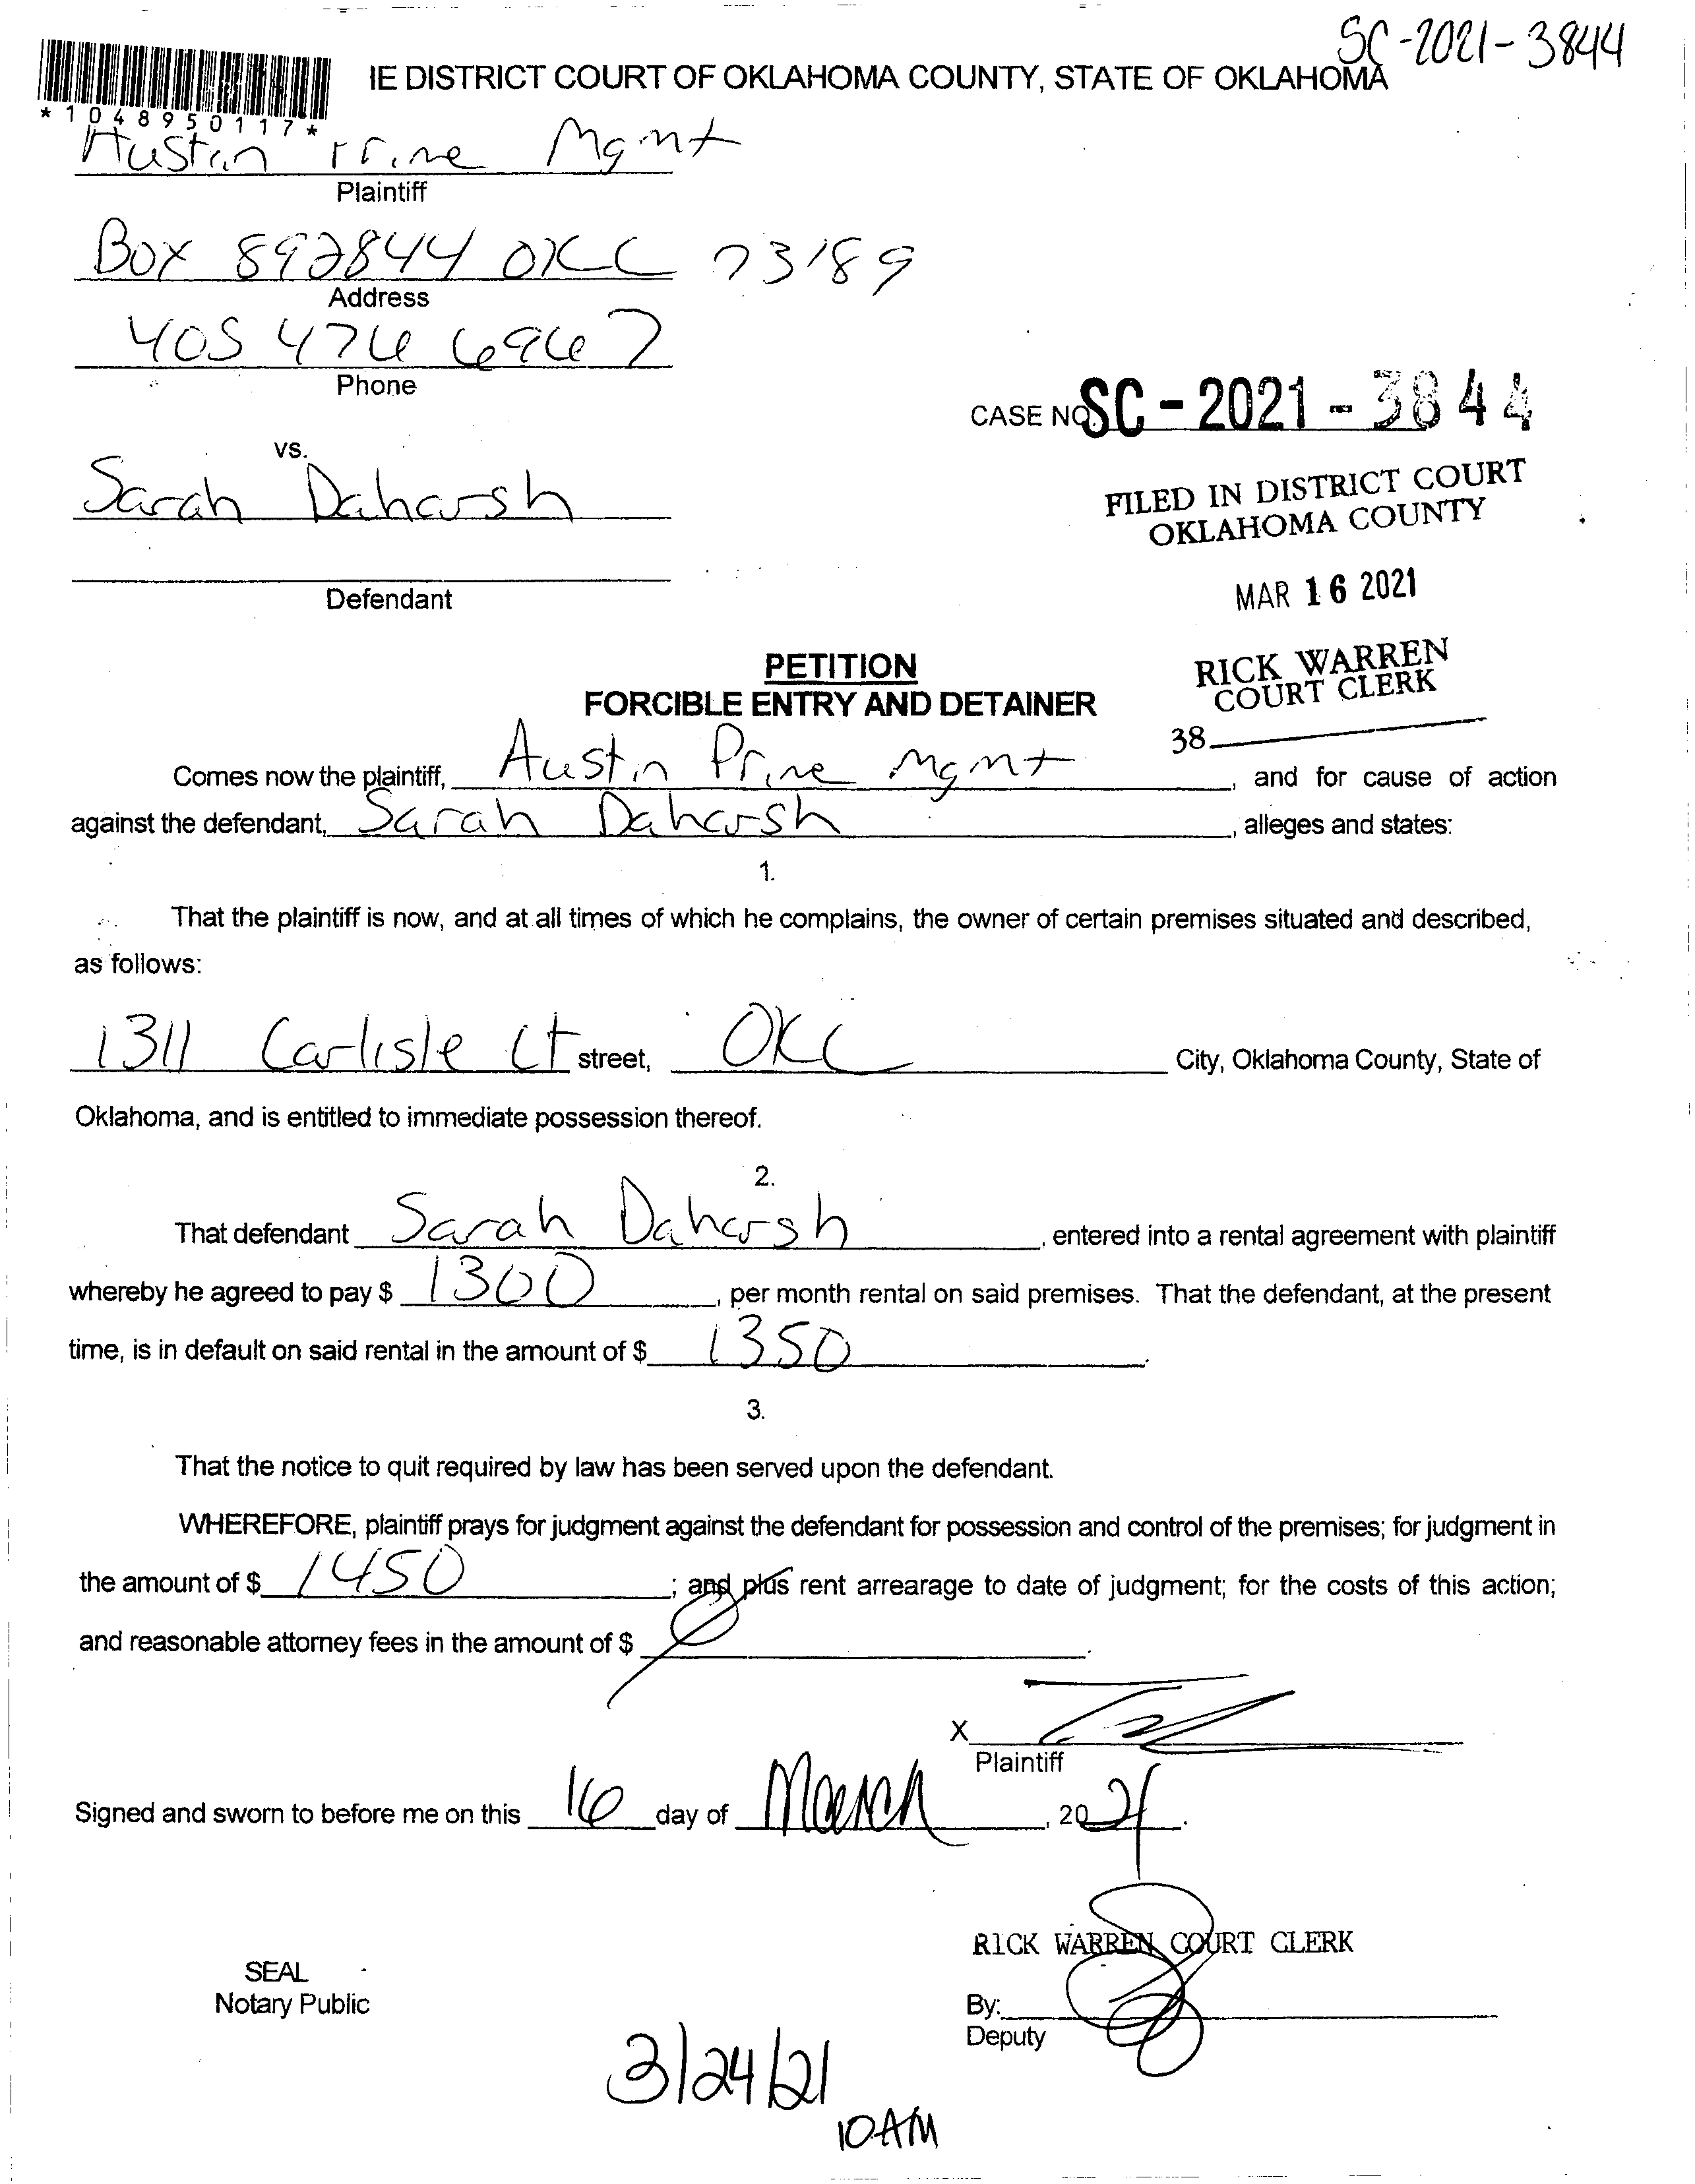 SC-2021-3844
IE DISTRICT COURT OF OKLAHOMA COUNTY, STATE OF OKLAHOMA
*1048950117*
Austin Prine Mgmt
Plaintiff
Box 892844 OKC 73189
Address
405 476 6967
Phone
CASE NO. SC-2021-3844
vs.
Sarah Daharsh
FILED IN DISTRICT COURT
OKLAHOMA COUNTY
Defendant
MAR 16 2021
RICK WARREN
COURT CLERK
38
PETITION
FORCIBLE ENTRY AND DETAINER
Comes now the plaintiff, Austin Prine Mgmt, and for cause of action
against the defendant, Sarah Daharsh, alleges and states:
1.
That the plaintiff is now, and at all times of which he complains, the owner of certain premises situated and described,
as follows:
1311 Carlisle Ct street, OKC City, Oklahoma County, State of
Oklahoma, and is entitled to immediate possession thereof.
2.
That defendant Sarah Daharsh, entered into a rental agreement with plaintiff
whereby he agreed to pay $ 1300, per month rental on said premises. That the defendant, at the present
time, is in default on said rental in the amount of $ 1350.
3.
That the notice to quit required by law has been served upon the defendant.
WHEREFORE, plaintiff prays for judgment against the defendant for possession and control of the premises; for judgment in
the amount of $ 1450; and plus rent arrearage to date of judgment; for the costs of this action;
and reasonable attorney fees in the amount of $
X
Plaintiff
Signed and sworn to before me on this 16 day of March, 2021.
RICK WARREN COURT CLERK
SEAL
Notary Public
By:
Deputy
3/24/21
10AM